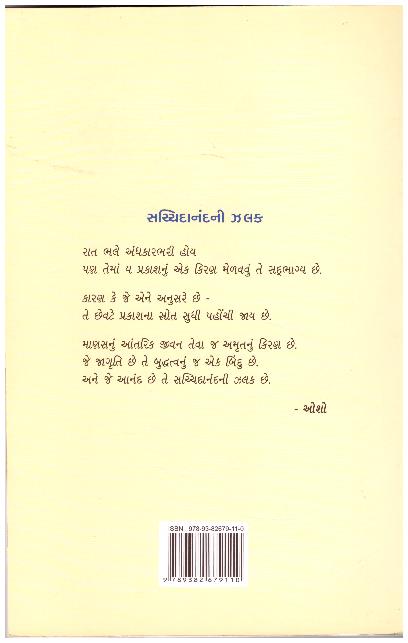 સચ્ચિદાનંદની ઝલક
રાત ભલે અંધકારભરી હોય
પણ તેમાં ય પ્રકાશનું એક કિરણ મેળવવું તે સદ્‌ભાગ્ય છે.
કારણ કે જે એને અનુસરે છે -
તે છેવટે પ્રકાશના સ્રોત સુધી પહોંચી જાય છે.
માણસનું આંતરિક જીવન તેવા જ અમૃતનું કિરણ છે.
જે જાગૃતિ છે તે બુદ્ધત્વનું જ એક બિંદુ છે.
અને જે આનંદ છે તે સચ્ચિદાનંદની ઝલક છે.
- ઓશો
ISBN : 978-93-82679-11-0
9 789382 679110